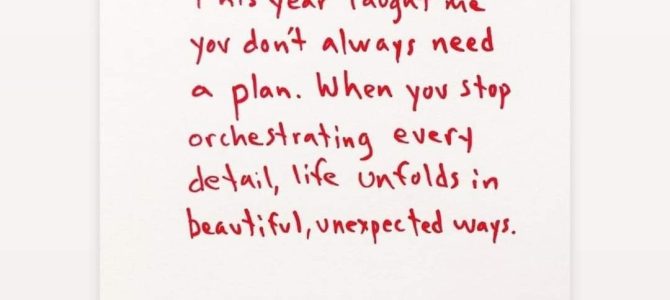 This year taught me
you don't always need
a plan. When you stop
orchestrating every
detail, life unfolds in
beautiful, unexpected ways.